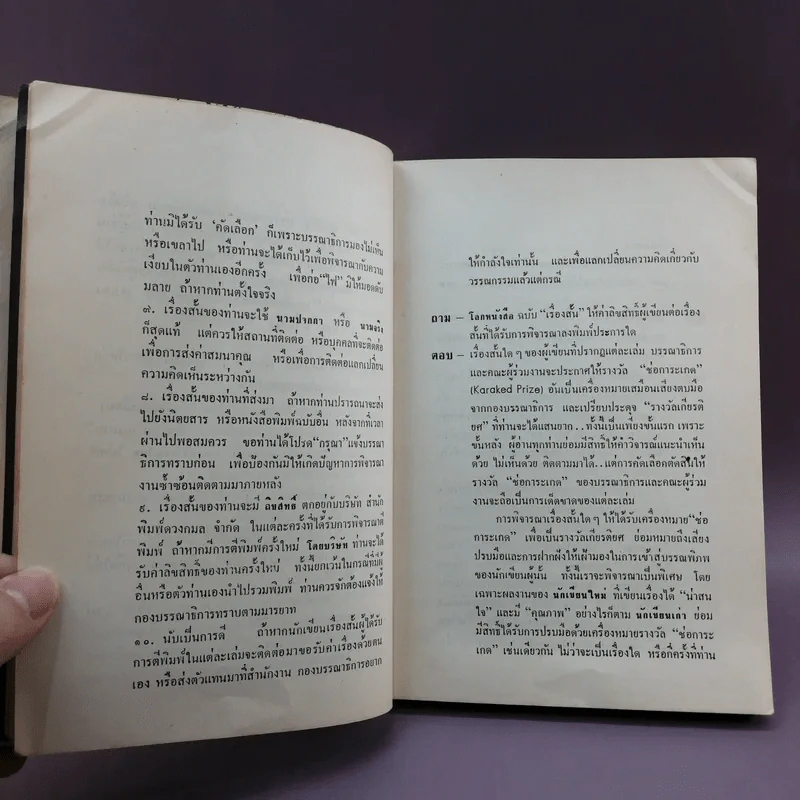 ท่านมิได้รับ ‘คัดเลือก’ ก็เพราะบรรณาธิการมองไม่เห็น
หรือเขลาไป หรือท่านจะได้เก็บไว้เพื่อพิจารณากับความ
เงียบในตัวท่านเองอีกครั้ง เพื่อก่อ “ไฟ” มิให้มอดดับ
มลาย ถ้าหากท่านตั้งใจจริง
๗. เรื่องสั้นของท่านจะใช้ นามปากกา หรือ นามจริง
ก็สุดแท้ แต่ควรให้สถานที่ติดต่อ หรือบุคคลที่จะติดต่อ
เพื่อการส่งค่าสมนาคุณ หรือเพื่อการติดต่อแลกเปลี่ยน
ความคิดเห็นระหว่างกัน
๘. เรื่องสั้นของท่านที่ส่งมา ถ้าหากท่านปรารถนาจะส่ง
ไปยังนิตยสาร หรือหนังสือพิมพ์ฉบับอื่น หลังจากที่เวลา
ผ่านไปพอสมควร ขอท่านได้โปรด “กรุณา” แจ้งบรรณา
ธิการทราบก่อน เพื่อป้องกันมิให้เกิดปัญหาการพิจารณา
งานซ้ำซ้อนติดตามมาภายหลัง
๙. เรื่องสั้นของท่านจะมี ลิขสิทธิ์ ตกอยู่กับบริษัท สำนัก
พิมพ์ดวงกมล จำกัด ในแต่ละครั้งที่ได้รับการพิจารณาตี
พิมพ์ ถ้าหากมีการตีพิมพ์ครั้งใหม่ โดยบริษัท ท่านจะได้
รับค่าลิขสิทธิ์ของท่านครั้งใหม่ ทั้งนี้ยกเว้นในกรณีที่มีผู้
อื่นหรือตัวท่านเองนำไปรวมพิมพ์ ท่านควรจักต้องแจ้งให้
กองบรรณาธิการทราบตามมารยาท
๑๐. นับเป็นการดี ถ้าหากนักเขียนเรื่องสั้นผู้ได้รับ
การตีพิมพ์ในแต่ละเล่มจะติดต่อมาขอรับค่าเรื่องด้วยตน
เอง หรือส่งตัวแทนมาที่สำนักงาน กองบรรณาธิการอยาก
ให้กำลังใจเท่านั้น และเพื่อแลกเปลี่ยนความคิดเกี่ยวกับ
วรรณกรรมแล้วแต่กรณี
ถาม – โลกหนังสือ ฉบับ “เรื่องสั้น” ให้ค่าลิขสิทธิ์ผู้เขียนต่อเรื่อง
สั้นที่ได้รับการพิจารณาลงพิมพ์ประการใด
ตอบ – เรื่องสั้นใด ๆ ของผู้เขียนที่ปรากฏแต่ละเล่ม บรรณาธิการ
และคณะผู้ร่วมงานจะประกาศให้รางวัล “ช่อการะเกด”
(Karaked Prize) อันเป็นเครื่องหมายเสมือนเสียงตบมือ
จากกองบรรณาธิการ และเปรียบประดุจ “รางวัลเกียรติ
ยศ” ที่ท่านจะได้แสนยาก..ทั้งนี้เป็นเพียงขั้นแรก เพราะ
ขั้นหลัง ผู้อ่านทุกท่านย่อมมีสิทธิ์ให้คำวิจารณ์แนะนำเห็น
ด้วย ไม่เห็นด้วย ติดตามมาได้..แต่การคัดเลือกตัดสินให้
รางวัล “ช่อการะเกด” ของบรรณาธิการและคณะผู้ร่วม
งานจะถือเป็นการเด็ดขาดของแต่ละเล่ม
การพิจารณาเรื่องสั้นใด ๆ ให้ได้รับเครื่องหมาย“ช่อ
การะเกด” เพื่อเป็นรางวัลเกียรติยศ ย่อมหมายถึงเสียง
ปรบมือและการฝากฝังให้เฝ้ามองในการเข้าสู่บรรณพิภพ
ของนักเขียนผู้นั้น ทั้งนี้เราจะพิจารณาเป็นพิเศษ โดย
เฉพาะผลงานของ นักเขียนใหม่ ที่เขียนเรื่องได้ “น่าสน
ใจ” และมี “คุณภาพ” อย่างไรก็ตาม นักเขียนเก่า ย่อม
มีสิทธิ์ได้รับการปรบมือด้วยเครื่องหมายรางวัล “ช่อการะ
เกด” เช่นเดียวกัน ไม่ว่าจะเป็นเรื่องใด หรือกี่ครั้งที่ท่าน